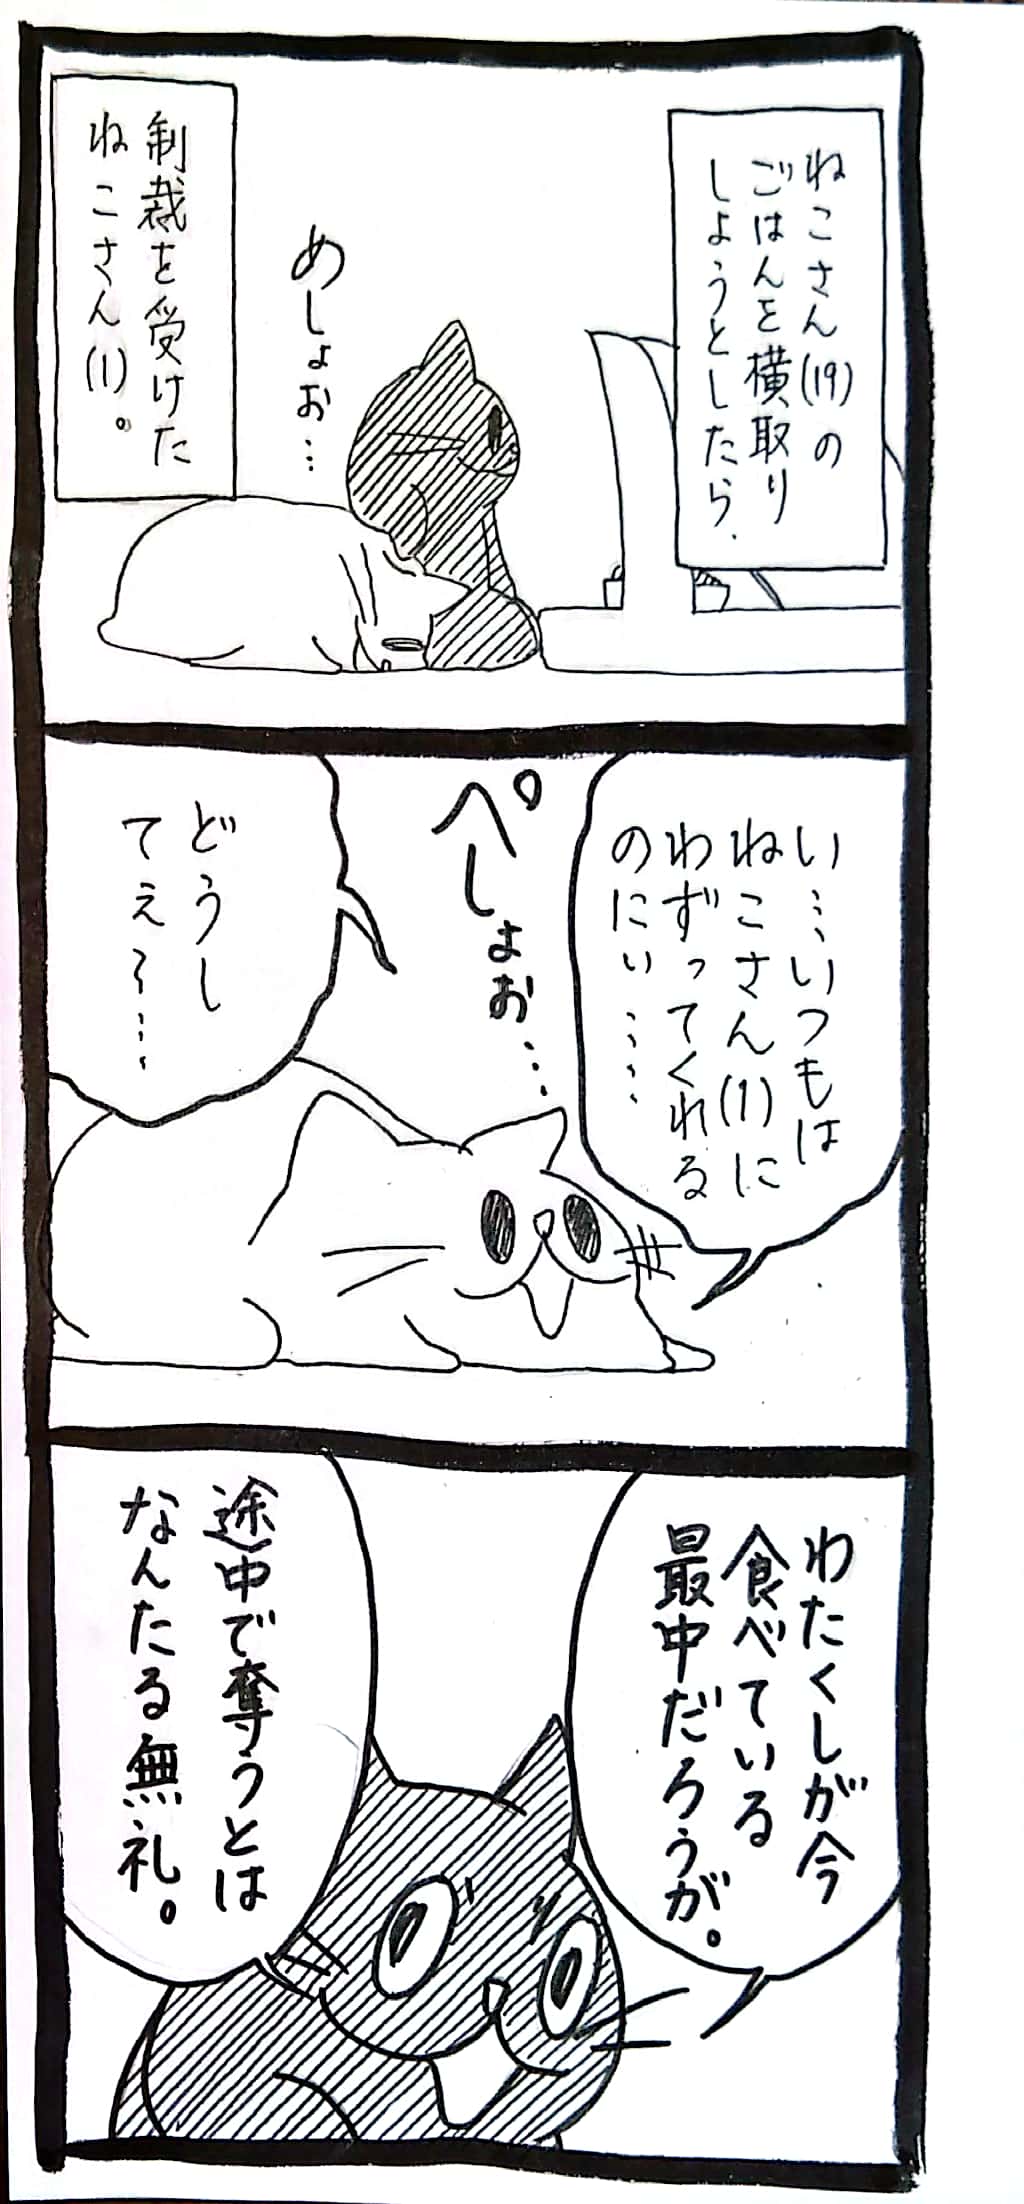 ねこさん(19)の
ごはんを横取り
しようとしたら、
めしょぉ…
制裁を受けた
ねこさん(1)。
い…いつもは
ねこさん(1)に
わずってくれる
のにぃ……
ぺしょぉ…
どうし
てぇ〜…
わたくしが今
食べている
最中だろうが。
途中で奪うとは
なんたる無礼。